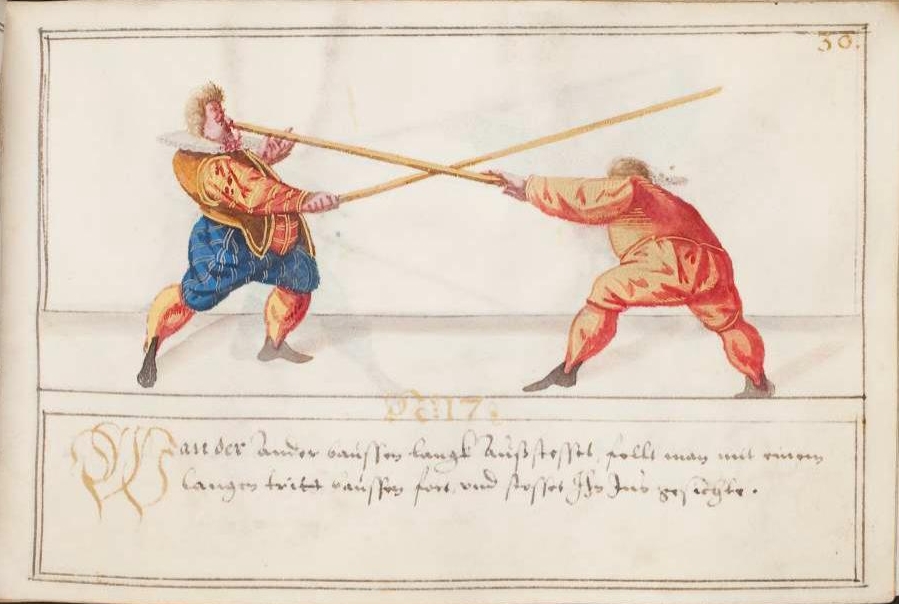 30.
17.
Wan der Ander daussen langk Aussstosset, fellt man mit einem
langen tritt daussen fort, und stosset Ihn Ins gesichte.